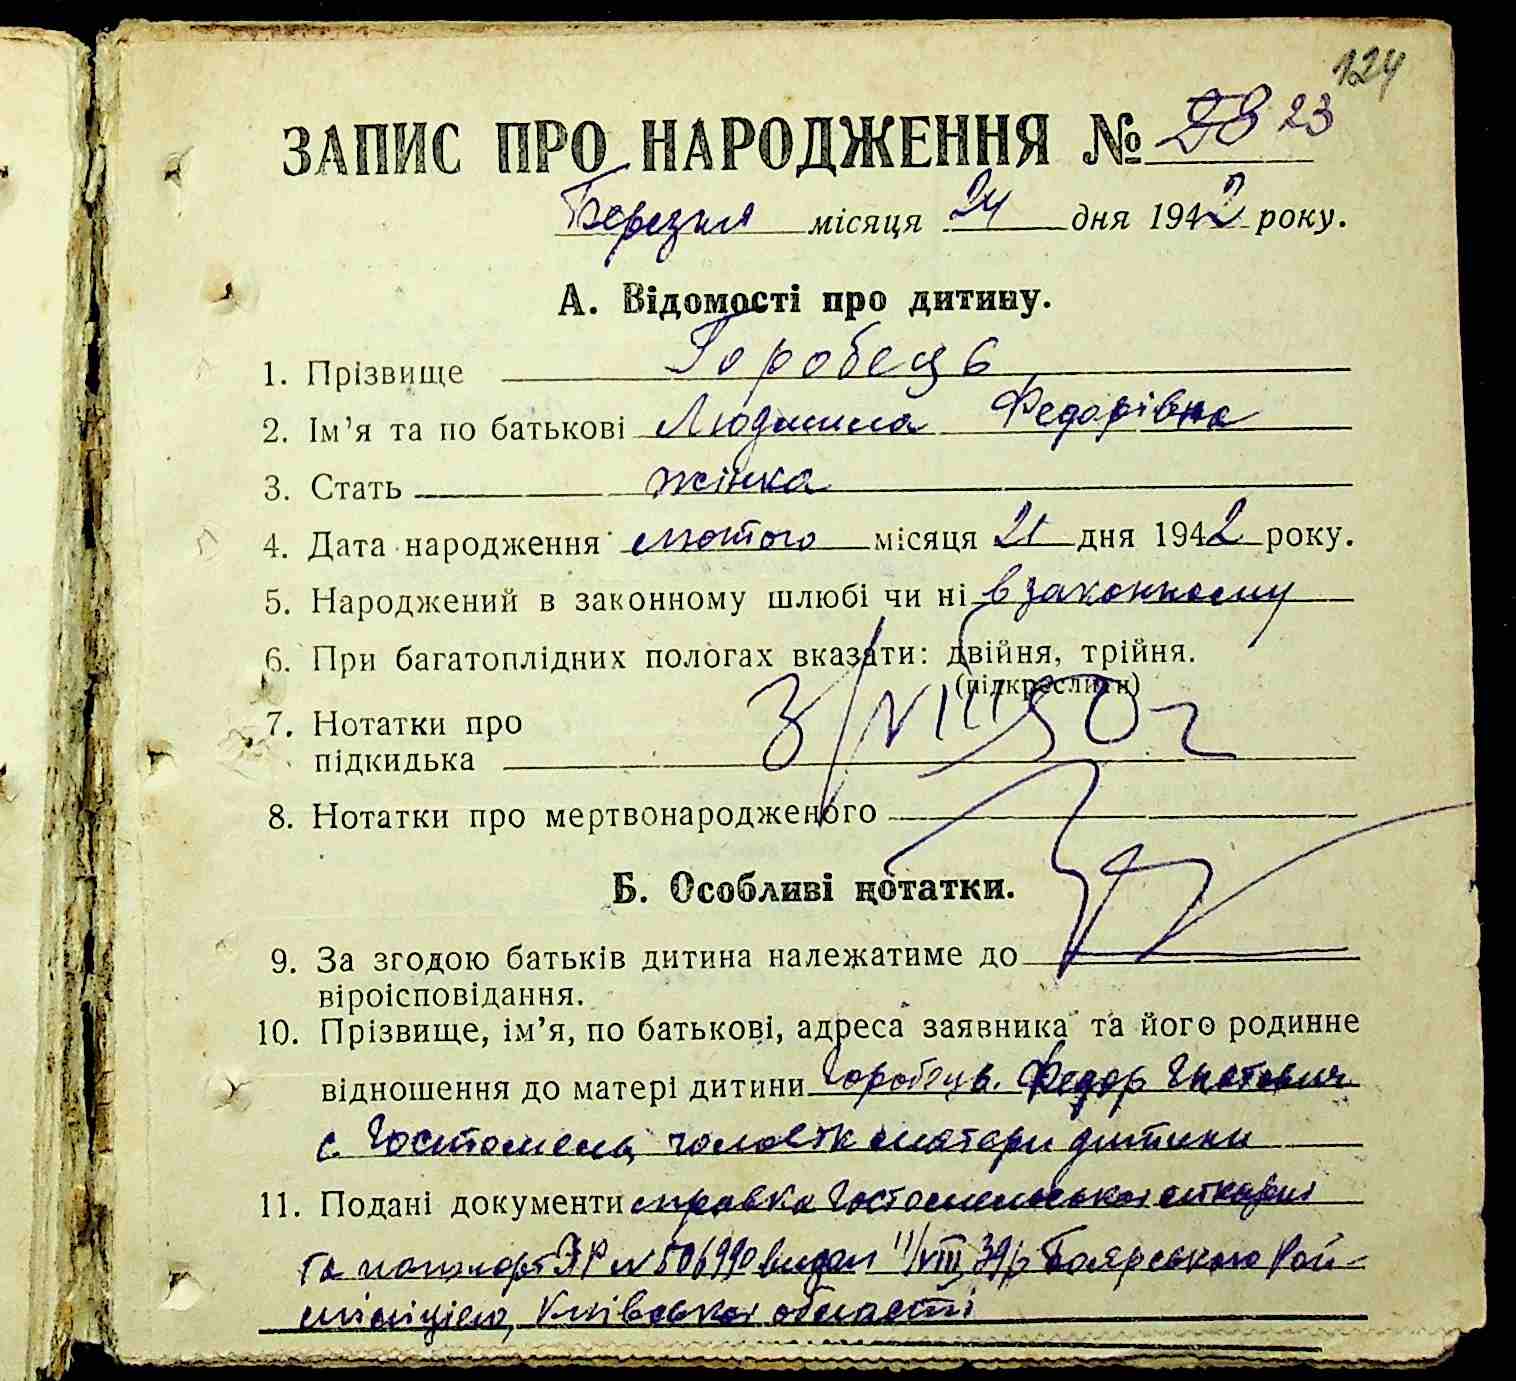 124
ЗАПИС ПРО НАРОДЖЕННЯ № 28 23
Березня місяця 24 дня 1942 року.
А. Відомості про дитину.
1. Прізвище Горобець
2. Ім'я та по батькові Людмила Федорівна
3. Стать жінка
4. Дата народження лютого місяця 21 дня 1942 року.
5. Народжений в законному шлюбі чи ні в законному
6. При багатоплідних пологах вказати: двійня, трійня.
(підкреслити)
7. Нотатки про
підкидька 3/VIII 50 г
8. Нотатки про мертвонародженого
Б. Особливі нотатки.
9. За згодою батьків дитина належатиме до
віроісповідання.
10. Прізвище, ім'я, по батькові, адреса заявника та його родинне
відношення до матері дитини Горобець Федор Гнатович
с. Гостомель, чоловік матери дитини
11. Подані документи справка Гостомельської лікарні
та паспорт № 506990 видан 11/VIII 39 р Боярською Рай-
міліцією, Київської області